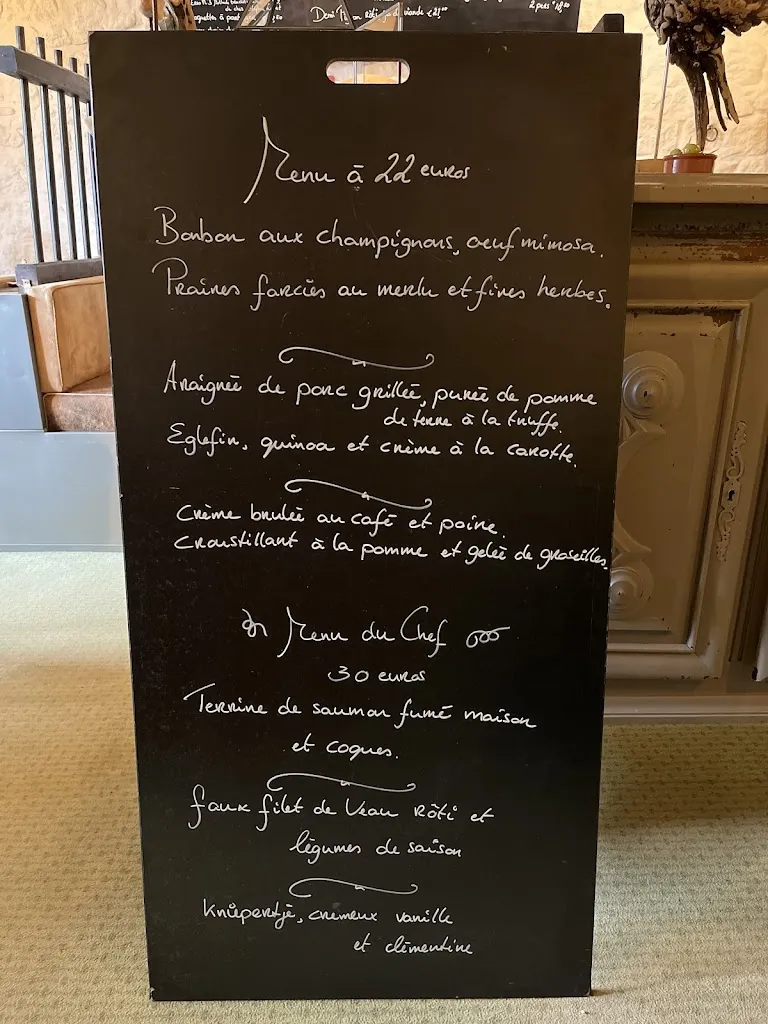 Demi
rôti
viande
2 pers
Menu à 22 euros
Bonbon aux champignons, oeuf mimosa.
Praires farcies au merlu et fines herbes.
Araignée de porc grillée, purée de pomme
de terre à la truffe.
Eglefin, quinoa et crème à la carotte.
Crème brulée au café et poire.
Croustillant à la pomme et gelée de groseilles.
Menu du Chef
30 euros
Terrine de saumon fumé maison
et coques.
faux filet de Veau Rôti et
légumes de saison
Knieperjtè, crémeux vanille
et clémentine